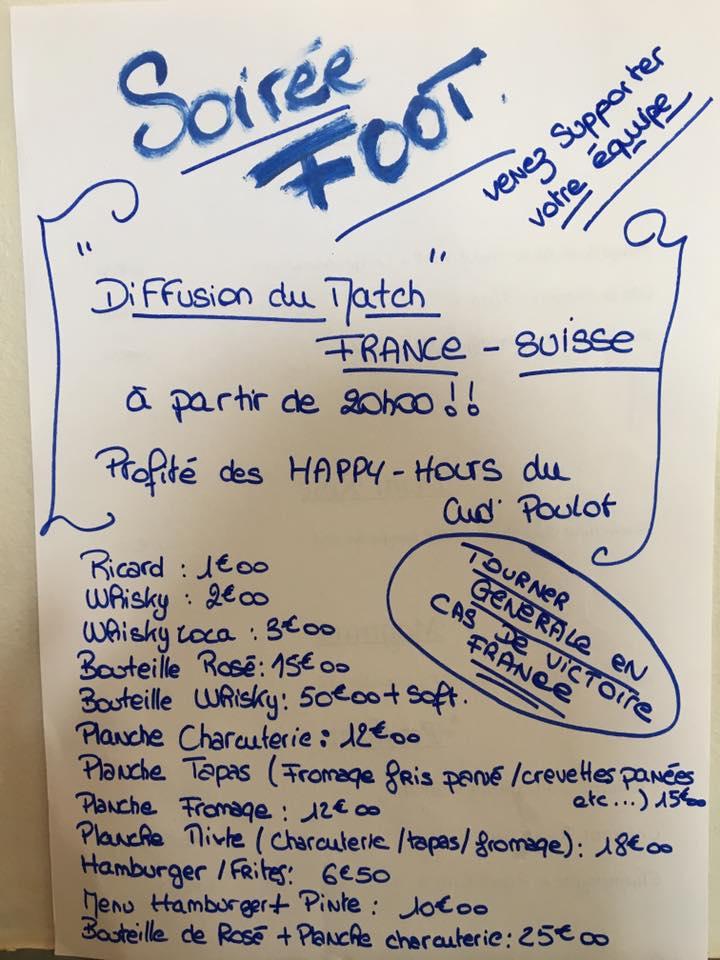 Soirée
FOOT.
venez supporter
votre équipe
" Diffusion du Match "
FRANCE - SUISSE
à partir de 20h00 !!
Profité des HAPPY-Hours du
Cud' Poulot
TOURNER
GENERALE EN
CAS DE VICTOIRE
FRANCE
Ricard : 1€00
Whisky : 2€00
Whisky coca : 3€00
Bouteille Rosé : 15€00
Bouteille Whisky : 50€00 + soft.
Planche Charcuterie : 12€00
Planche Tapas (Fromage fris pané / crevettes panées
etc...) 15€00
Planche Fromage : 12€00
Planche Mixte (charcuterie / tapas / fromage) : 18€00
Hamburger / Frites : 6€50
Menu Hamburger + Pinte : 10€00
Bouteille de Rosé + Planche charcuterie : 25€00